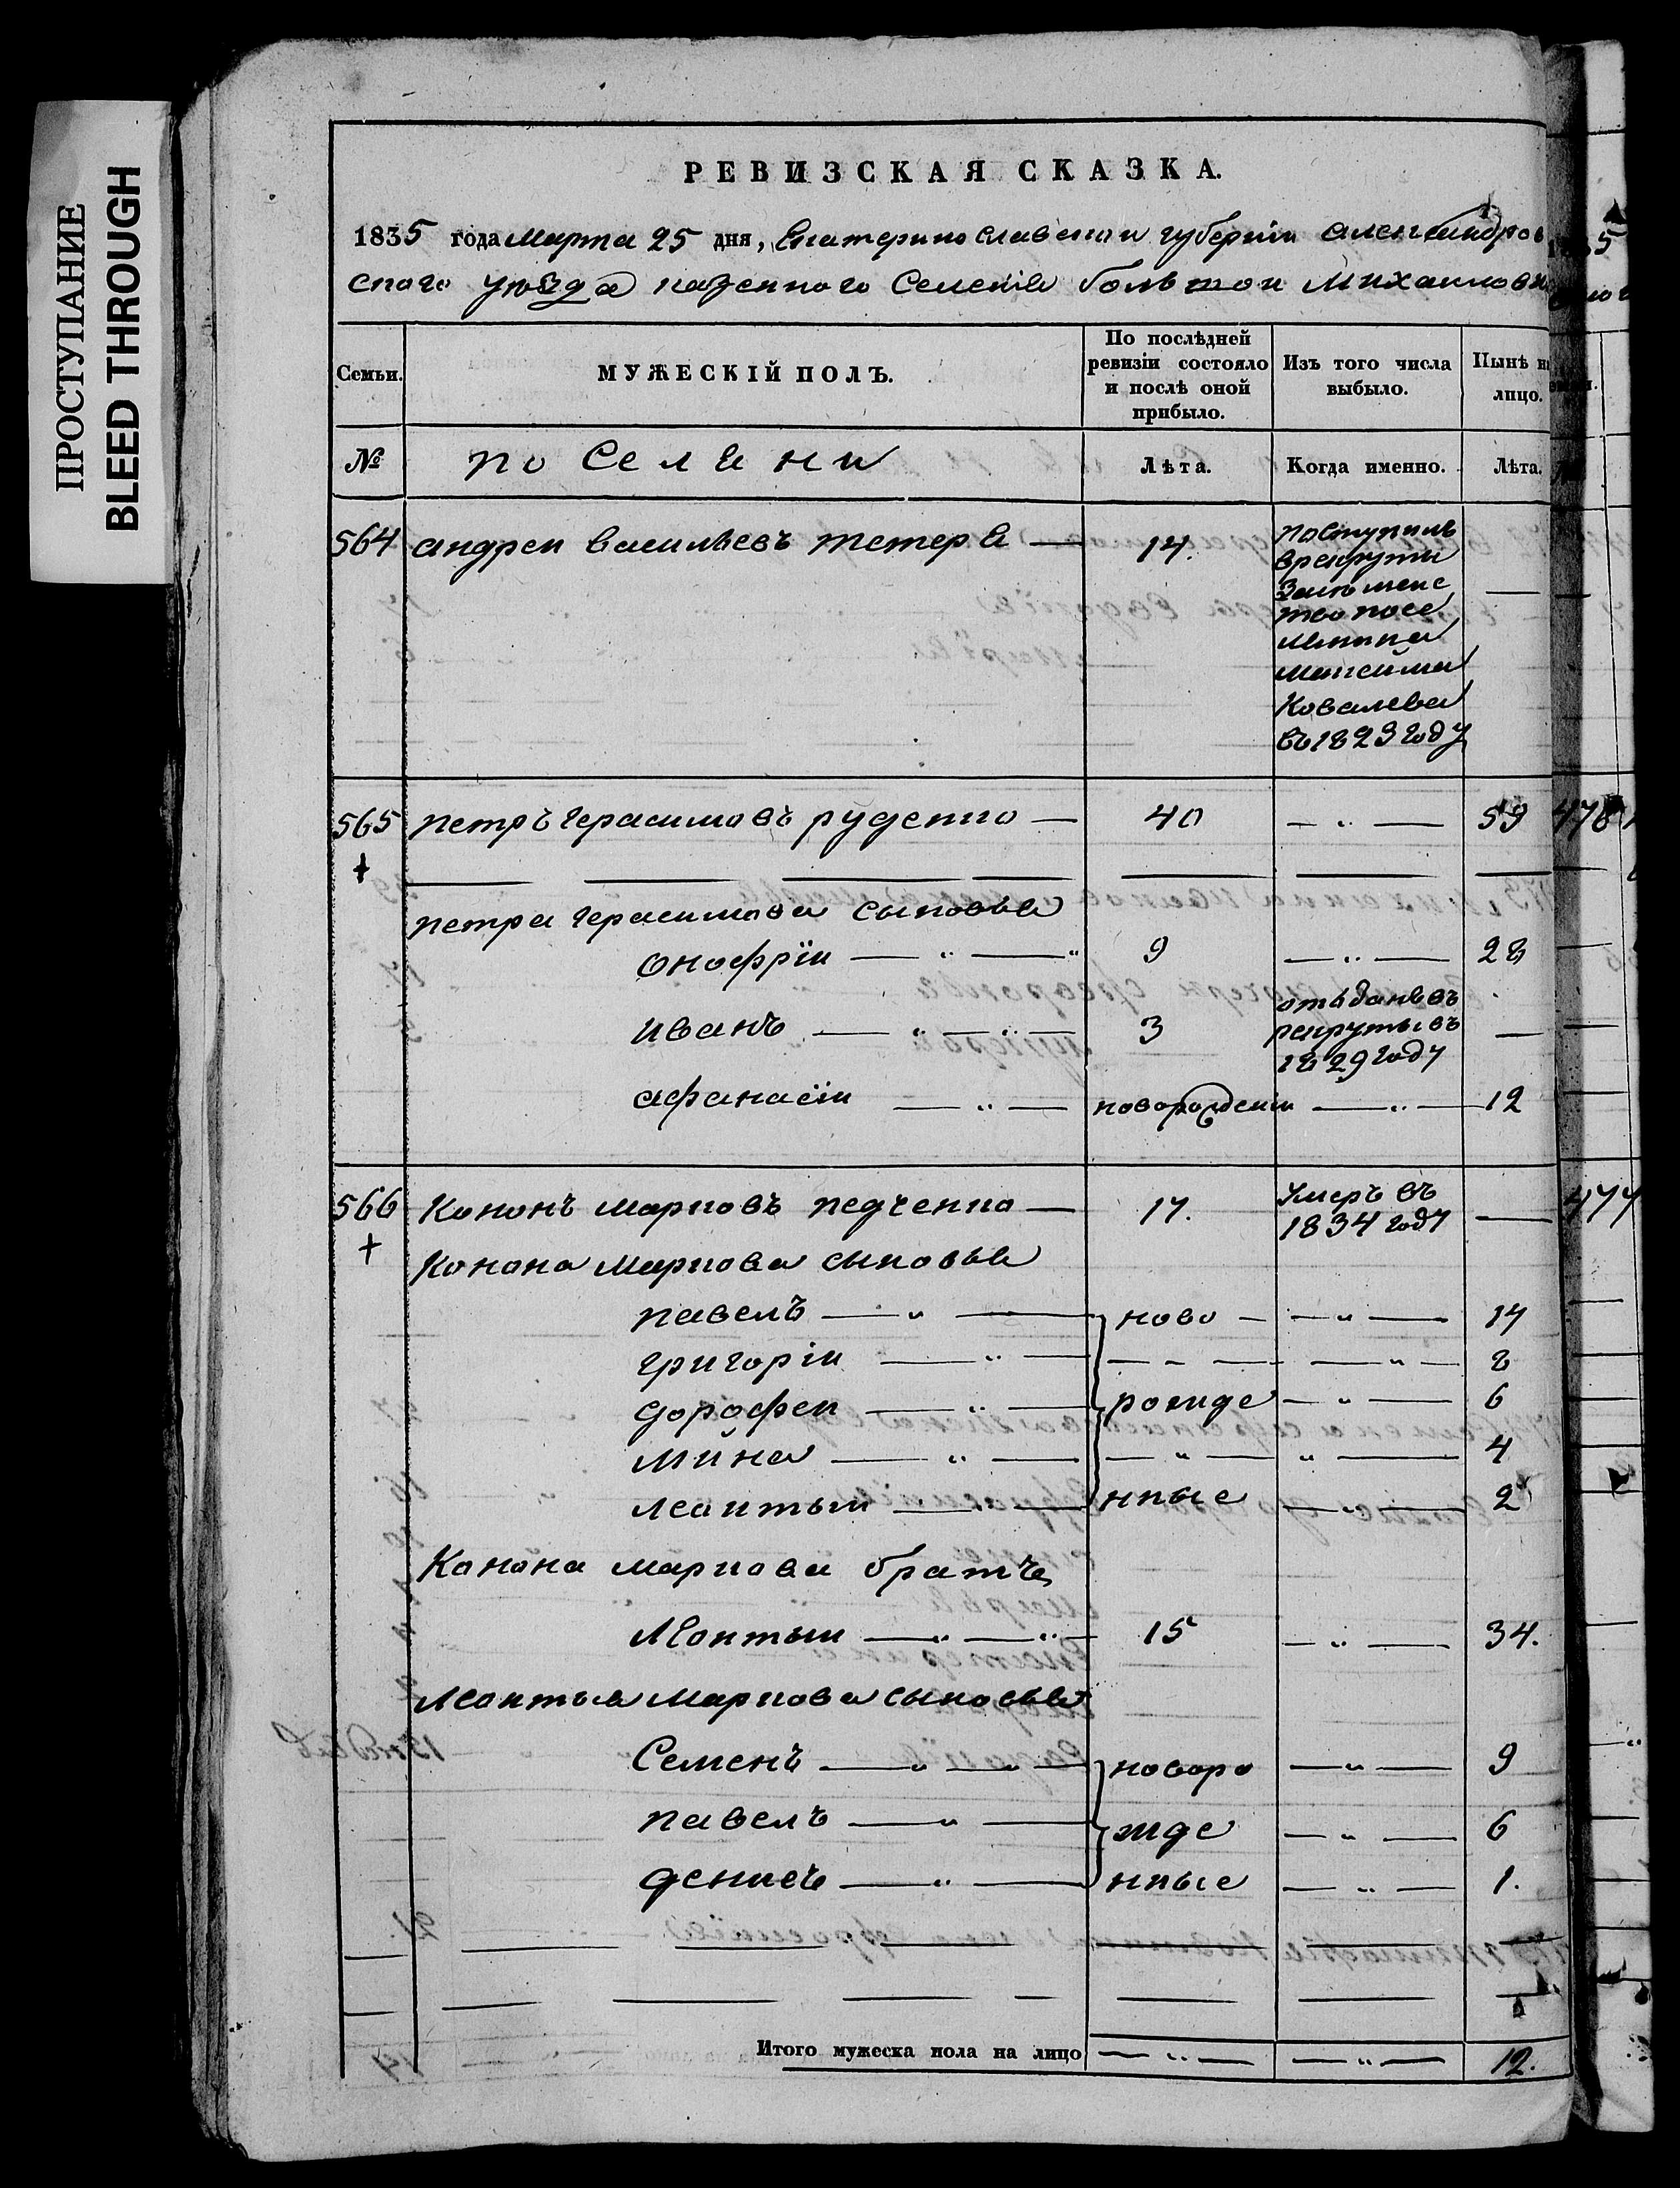 ПРОСТУПАНИЕ
BLEED THROUGH
РЕВИЗСКАЯ СКАЗКА.
1835 года марта 25 дня, Екатеринославской губернии александров
скаго уѣзда казенного Селенія большой михаиловки
Семьи.
МУЖЕСКІЙ ПОЛЪ.
По послѣдней ревизіи состояло и послѣ оной прибыло.
Изъ того числа выбыло.
Нынѣ на лицо.
№ поселяни Лѣта. Когда именно. Лѣта.
564 андреи васильевъ тетеря — 14. поступилъ
в рекруты
Зам
тво посе
лянина
максима
Ковалева
въ 1823 году
565 петръ герасимовъ руденко — 40 — " — 59 478
петра герасимова сыновья
онофріи — " — " 9 — " — 28
иванъ — " — " — 3 отъданъ въ
рекруты въ
1829 году —
афанасіи — " — новорожденн — " — 12
566 Кононъ марковъ педченко — 17. Умеръ въ
1834 году — 477
Конона маркова сыновья
павелъ — " — ново — — " — 14
григоріи — " — — " — 8
дорофеи — " — рожде — " — 6
мина — " — — " — " — 4
леонтыи — " — нные — " — 2
Конона маркова братъ
Леонтыи — " — " — 15 — " — 34.
леонтыя маркова сыновья
Семенъ — " — " — новоро — " — 9
павелъ — " — жде — " — 6
денисъ — " — нные — " — 1.
Итого мужеска пола на лицо — " — — " — 12.